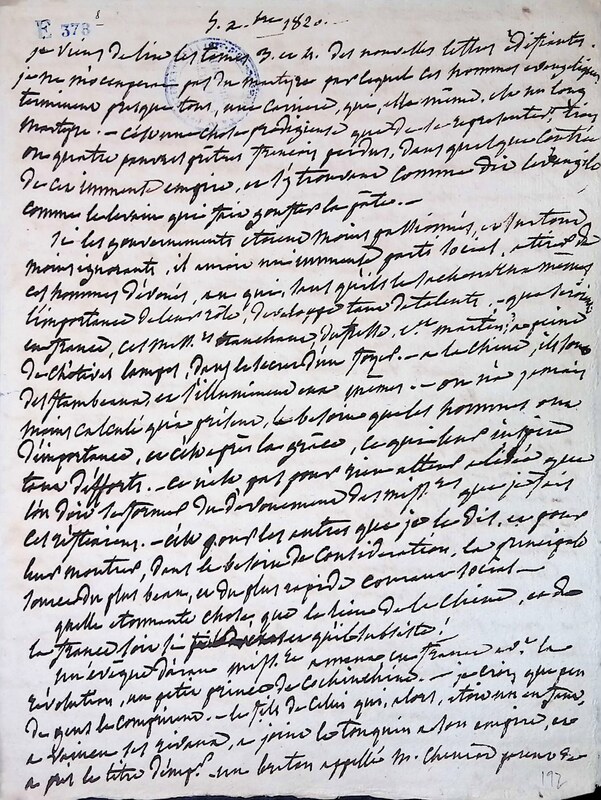 E 378 8
S. 2. bre 1820.
je viens de lire les tomes 3. et 4. des nouvelles lettres édifiantes.
je ne m'occuperai pas du martyre par lequel ces hommes évangéliques
terminent presque tous, une carrière, que, elle même, est un long
martyre. - c'est une chose prodigieuse que de se représenter, trois
ou quatre pauvres prêtres français perdus, dans quelque contrée
de cet immense empire, et s'y trouvant comme dit l'évangile
comme le levain qui fait gonfler la pâte. -
Si les gouvernements étaient moins passionnés, et surtout
moins ignorants, il y aurait un immense parti social, à tirer de
ces hommes dévoués, en qui, sans qu'ils le sachent eux mêmes
l'importance de leur rôle, développe tant de talents. - que seroient
en france, ces miss.res Dufresse, et martin, à peine
de chétives lampes, dans le secret d'un foyer. - a la Chine, ils sont
des flambeaux et s'illuminent eux mêmes. - on n'a jamais
moins calculé qu'à présent, le besoin que les hommes ont
d'importance, et c'est après la grâce, ce qui leur inspire
tant d'efforts. - ce n'est pas pour rien altérer à l'idée que
l'on doit se former du dévouement des miss.res que je fais
ces réflexions. - c'est pour les autres que je le dis, et pour
leur montrer, dans le besoin de considération, la principale
source du plus beau, et du plus rapide commerce social. -
quelle étonnante chose, que le lien de la Chine, et de
la france soit la et qu'il subsiste!
un évêque d'adran miss.re amena en france av.t la
révolution, un petit prince de Cochinchine. - je crois que peu
de gens le comprirent. - le fils de celui qui, alors, était un enfant,
a vaincu ses rivaux, a joint le tonquin a son empire, et
a pris le titre d'emp.r un breton appellé M. parent de
192